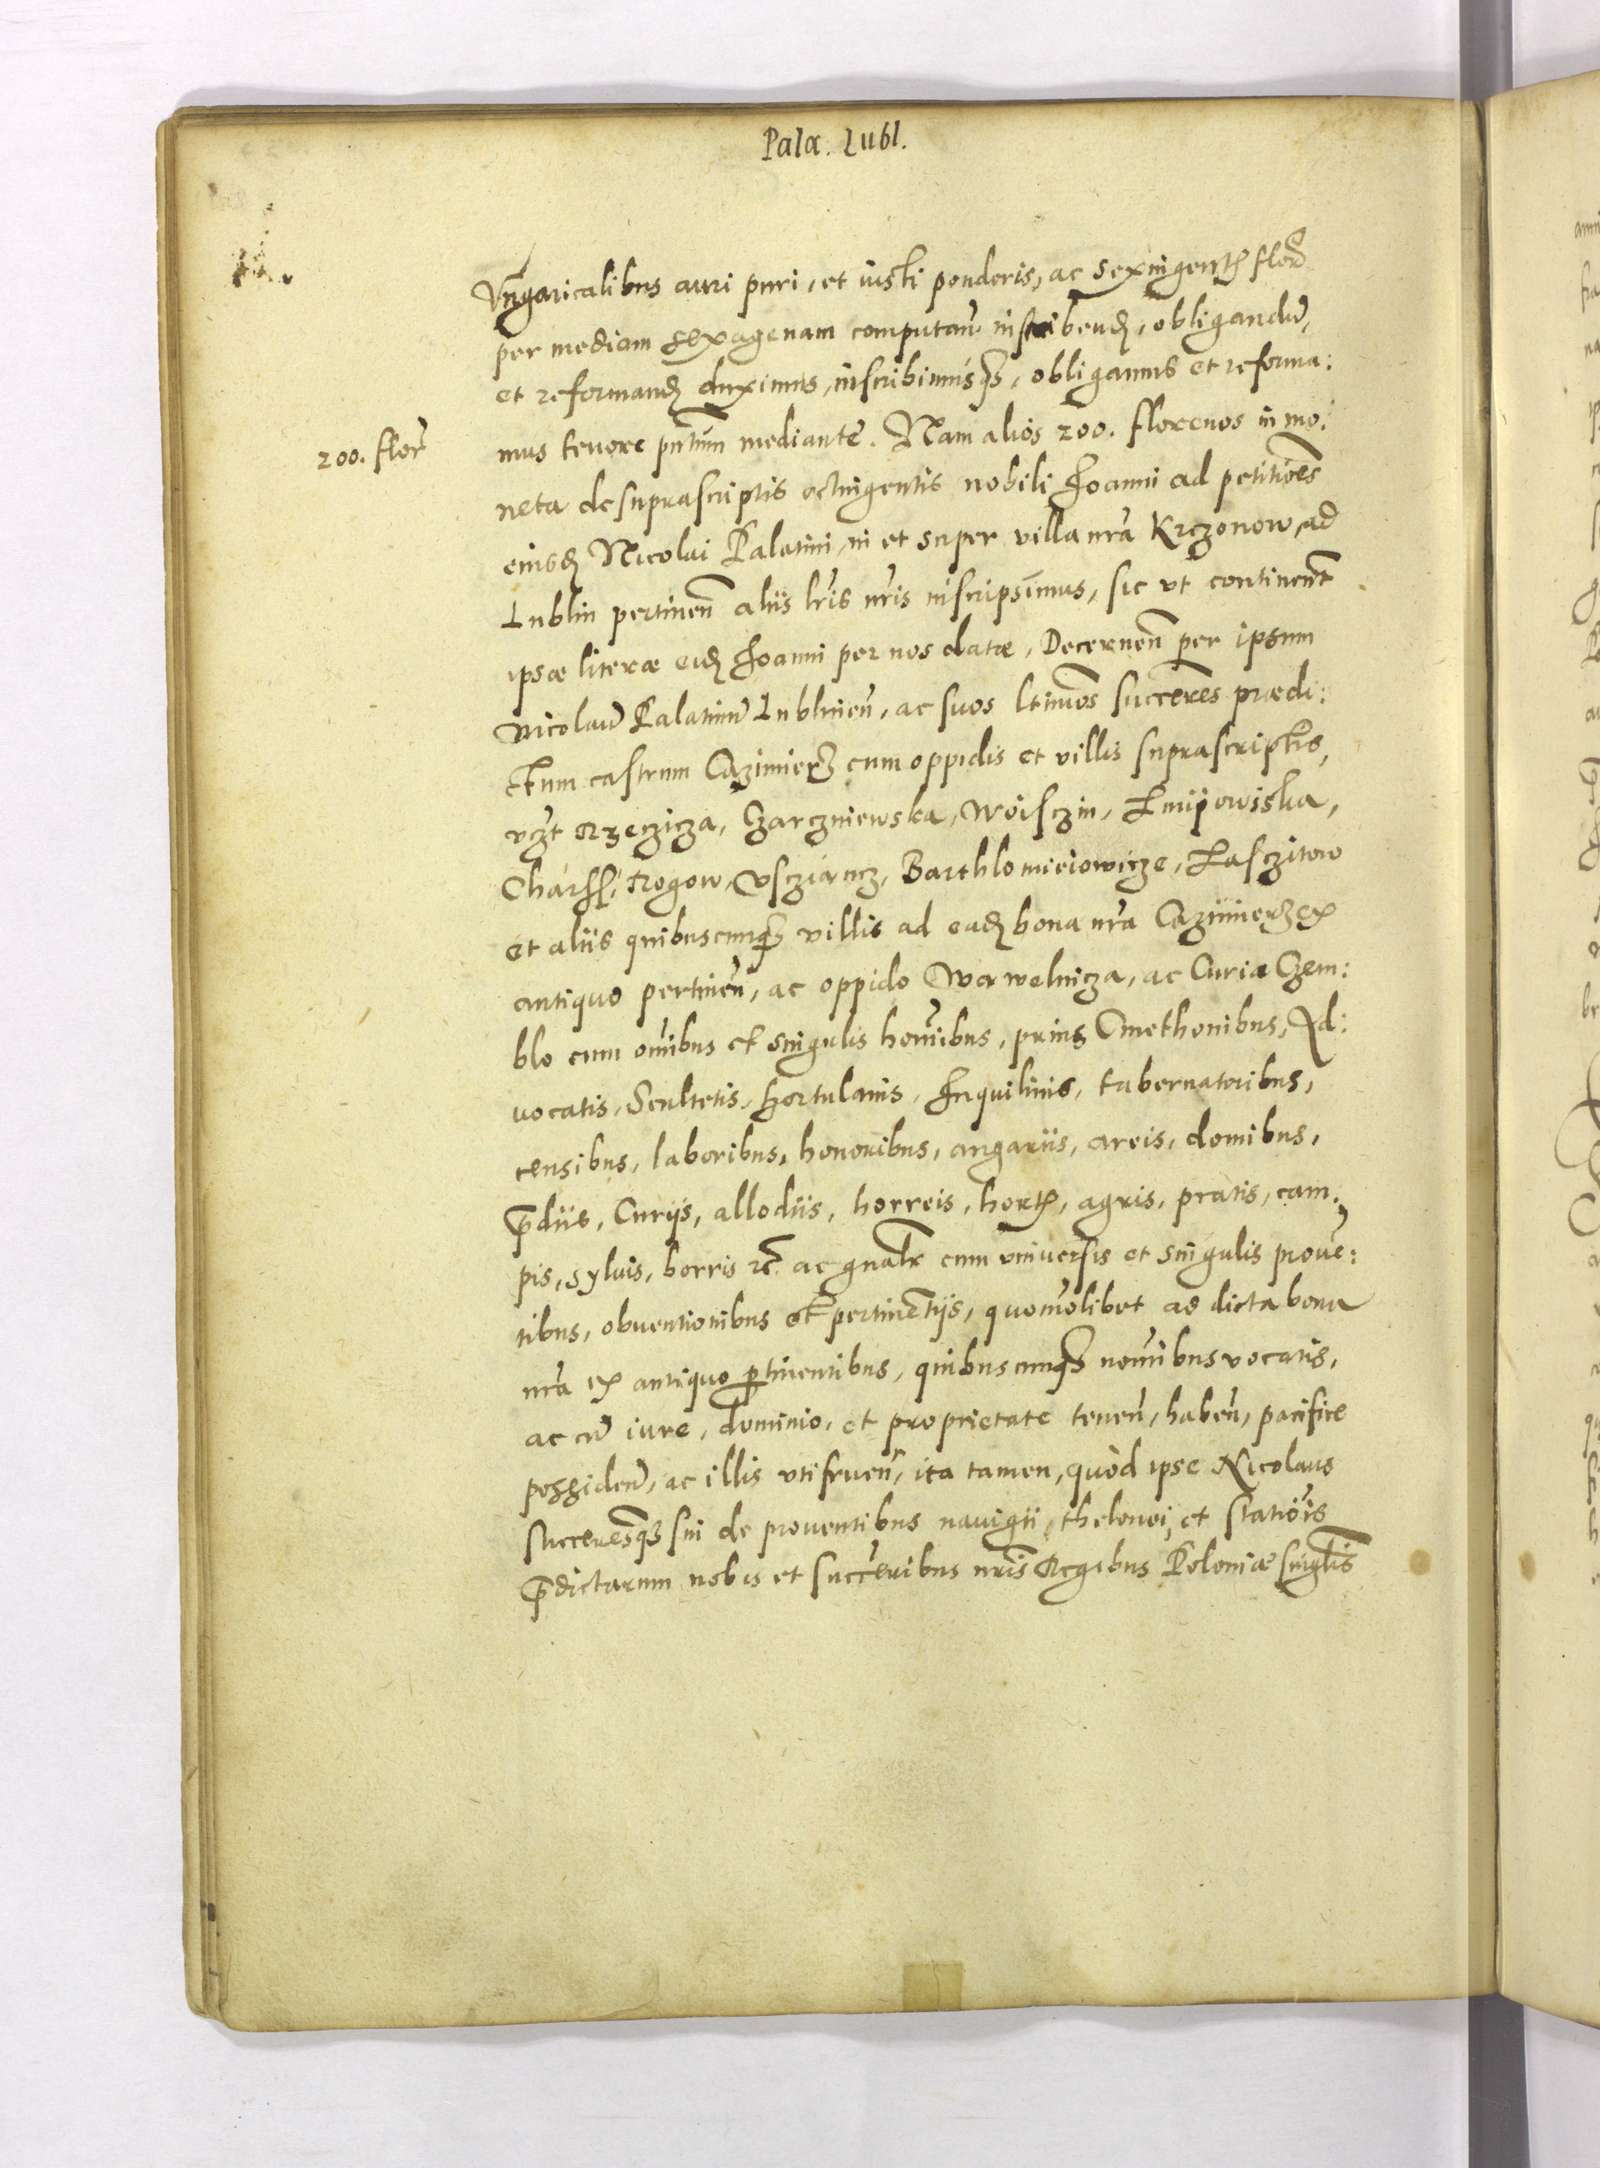 Pala. Lubl.
Vngaricalibus auri puri, et iusti ponderis, ac sexingent flor
per mediam sexagenam computan inscribend, obligandu,
et reformand duximus, inscribimusq, obligamus et reforma:
200. flor
mus tenore pntium mediante. Nam alios 200. florenos in mo:
neta de suprascriptis octingentis nobili Joanni ad petitiões
eiusd Nicolai Palatini, in et super villa nra Krczonow, ad
Lublin pertinen aliis lris nris inscripsimus, sic vt continent
ipsæ literæ eid Joanni per nos datæ, Decernen per ipsum
Nicolau Palatinu Lublinen, ac suos ltimos succeres prædi:
ctum castrum Cazimierz cum oppidis et villis suprascriptis,
vczt Rzeczicza, Czarczniewska, Woisczin,
Rogow, Vscziancz, Barthlomieiowicze, Lasczitow
et aliis quibuscunq villis ad ead bona nra Cazimierz ex
antiquo pertinen, ac oppido Wawelnicza, ac Curia Czem:
blo cum omibus et singulis homibus, Cmethonibus, Ad:
uocatis, Scultetis, Hortulanis, Inquilinis, tabernatoribus,
censibus, laboribus, honoribus, angariis, areis, domibus,
pdiis, Curijs, allodiis, horreis, hort, agris, pratis, cam:
pis, syluis, borris &c ac gnalr cum vniversis et singulis prove:
tibus, obuentionibus et pertinetijs, quomolibet ad dicta bona
nra ex antiquo ptinentibus, quibuscunq nomibus vocatis,
ac cu iure, dominio, et proprietate tenen, haben, pacifice
possiden, ac illis vtifruen, ita tamen, quod ipse Nicolaus
succeresq sui de prouentibus nauigii, thelonei, et statiois
pdictarum nobis et succeribus nris Regibus Poloniæ singlis